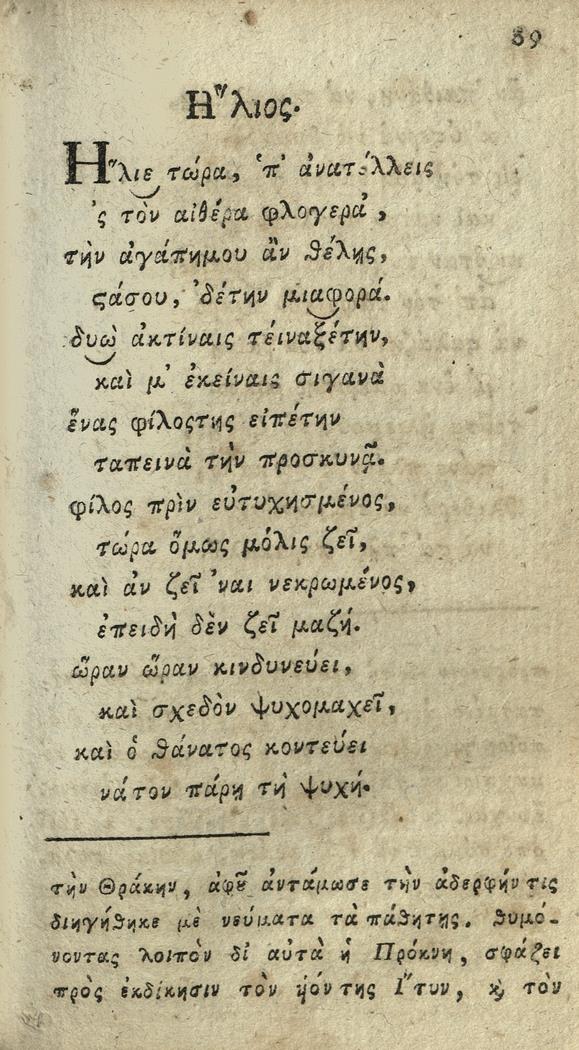 89
Ἥλιος.
Ἥλιε τώρα, ‘π’ ἀνατέλλεις
’ς τὸν αἰθέρα φλογερὰ,
τὴν ἀγάπημου ἂν θέλῃς,
ϛάσου, ’δέτην μιαφορά.
δυὼ ἀκτίναις τέιναξέτην,
καὶ μ’ ἐκείναις σιγανὰ
ἕνας φίλοςτης εἰπέτην
ταπεινὰ τὴν προσκυνᾷ.
φίλος πρὶν εὐτυχησμένος,
τώρα ὅμως μόλις ζεῖ,
καὶ ἀν ζεῖ ’ναι νεκρωμένος,
ἐπειδὴ δὲν ζεῖ μαζή.
ὥραν ὥραν κινδυνεύει,
καὶ σχεδὸν ψυχομαχεῖ,
καὶ ὁ θάνατος κοντεύει
νάτον πάρῃ τὴ ψυχή.
τὴν Θράκην, ἀφȣ͂ ἀντάμωσε τὴν ἀδερφήν τις
διηγήθηκε μὲ νεύματα τὰ πάθητης. θυμό-
νοντας λοιπὸν δἰ αὐτὰ ἡ Πρόκνη, σφάζει
πρὸς ἐκδίκησιν τὸν ὑόν της Ἴτυν, ϗ τὸν